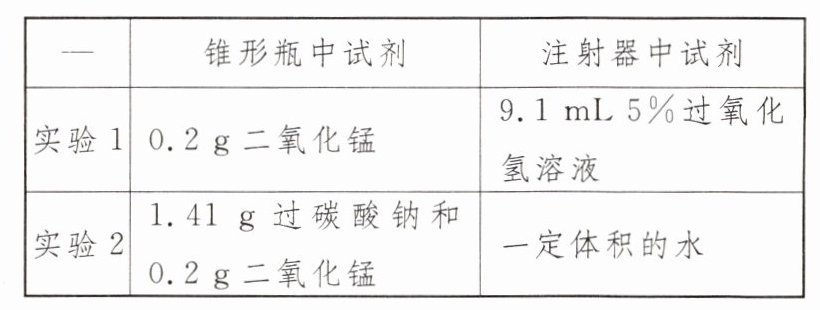 — 锥形瓶中试剂 注射器中试剂
实验1 0.2 g二氧化锰 9.1 mL 5%过氧化
氢溶液
实验2 1.41 g 过碳酸钠和
0.2 g二氧化锰 一定体积的水